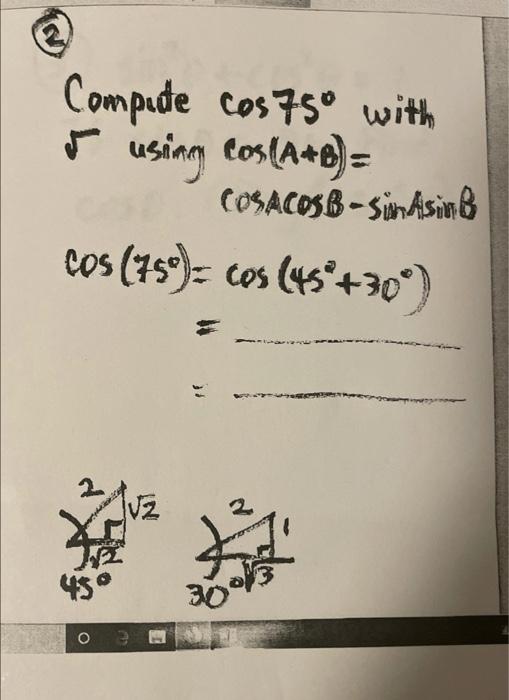 ②
Compute cos 75° with
√ using cos(A+B)=
cosAcosB-sinAsinB
cos(75°)= cos(45°+30°)
= ____________
= ____________
2 √2 2 1
√2 √3
45° 30°